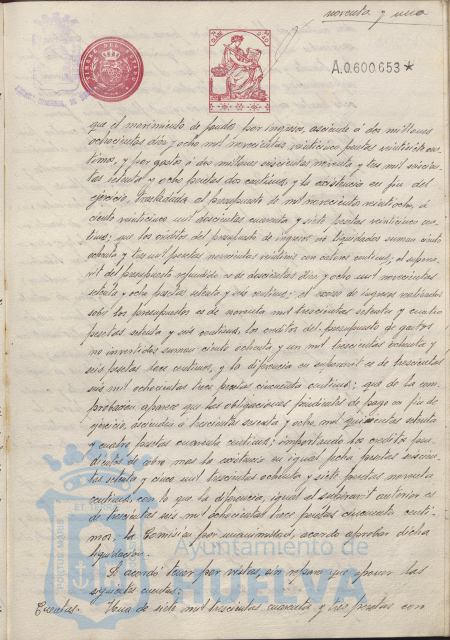 noventa y uno
A.0.600.653*
que el movimiento de fondos por ingresos, asciende á dos millones
ochocientas diez y ocho mil novecientas veinticinco pesetas veintisiete cen
timos, y por gastos á dos millones seiscientas noventa y tres mil seiscien
tas setenta y ocho pesetas dos centimos, y la existencia en fin del
ejercicio, trasladada al presupuesto de mil novecientos veintiocho, á
ciento veinticinco mil doscientas cuarenta y siete pesetas veinticinco cen
timos; que los créditos del presupuesto de ingresos no liquidados suman ciento
ochenta y tres mil pesetas novecientas veintiuna con catorce centimos; el supera-
vit del presupuesto refundido es de doscientas diez y ocho mil novecientas
setenta y ocho pesetas setenta y seis centimos; el exceso de ingresos realizados
sobre los presupuestos es de noventa mil trescientas setenta y cuatro
pesetas setenta y seis centimos, los creditos del presupuesto de gastos
no invertidos suman ciento ochenta y un mil trescientas ochenta y
seis pesetas doce centimos, y la diferencia en superavit es de trescientas
seis mil ochocientas trece pesetas cincuenta centimos; que de la com
probación aparece que las obligaciones pendientes de pago en fin de
ejercicio, ascienden á trescientas sesenta y ocho mil quinientas setenta
y cuatro pesetas cuarenta centimos; importando los creditos pen
dientes de cobro mas la existencia en igual fecha pesetas seiscien
tas setenta y cinco mil trescientas ochenta y siete pesetas noventa
centimos, con lo que la diferencia, igual al superavit anterior es
de trescientas seis mil ochocientas trece pesetas cincuenta centi-
mos; la Comisión por unanimidad, acordó aprobar dicha
liquidación.
Se acordó tener por vistas, sin reparo que oponer las
siguientes cuentas:
Cuentas. Una de siete mil trescientas cuarenta y tres pesetas con
PORTUS MARIS
ET TERRAE
Ayuntamiento de
HUELVA